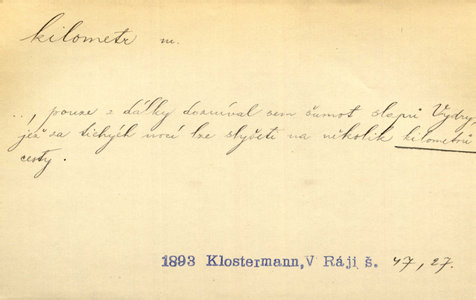 kilometr m.
.., pouze z dálky dozníval sem šumot slapů Vydry,
jež za tichých nocí lze slyšeti na několik kilometrů
cesty.
1893 Klostermann, V Ráji š. 47, 27.